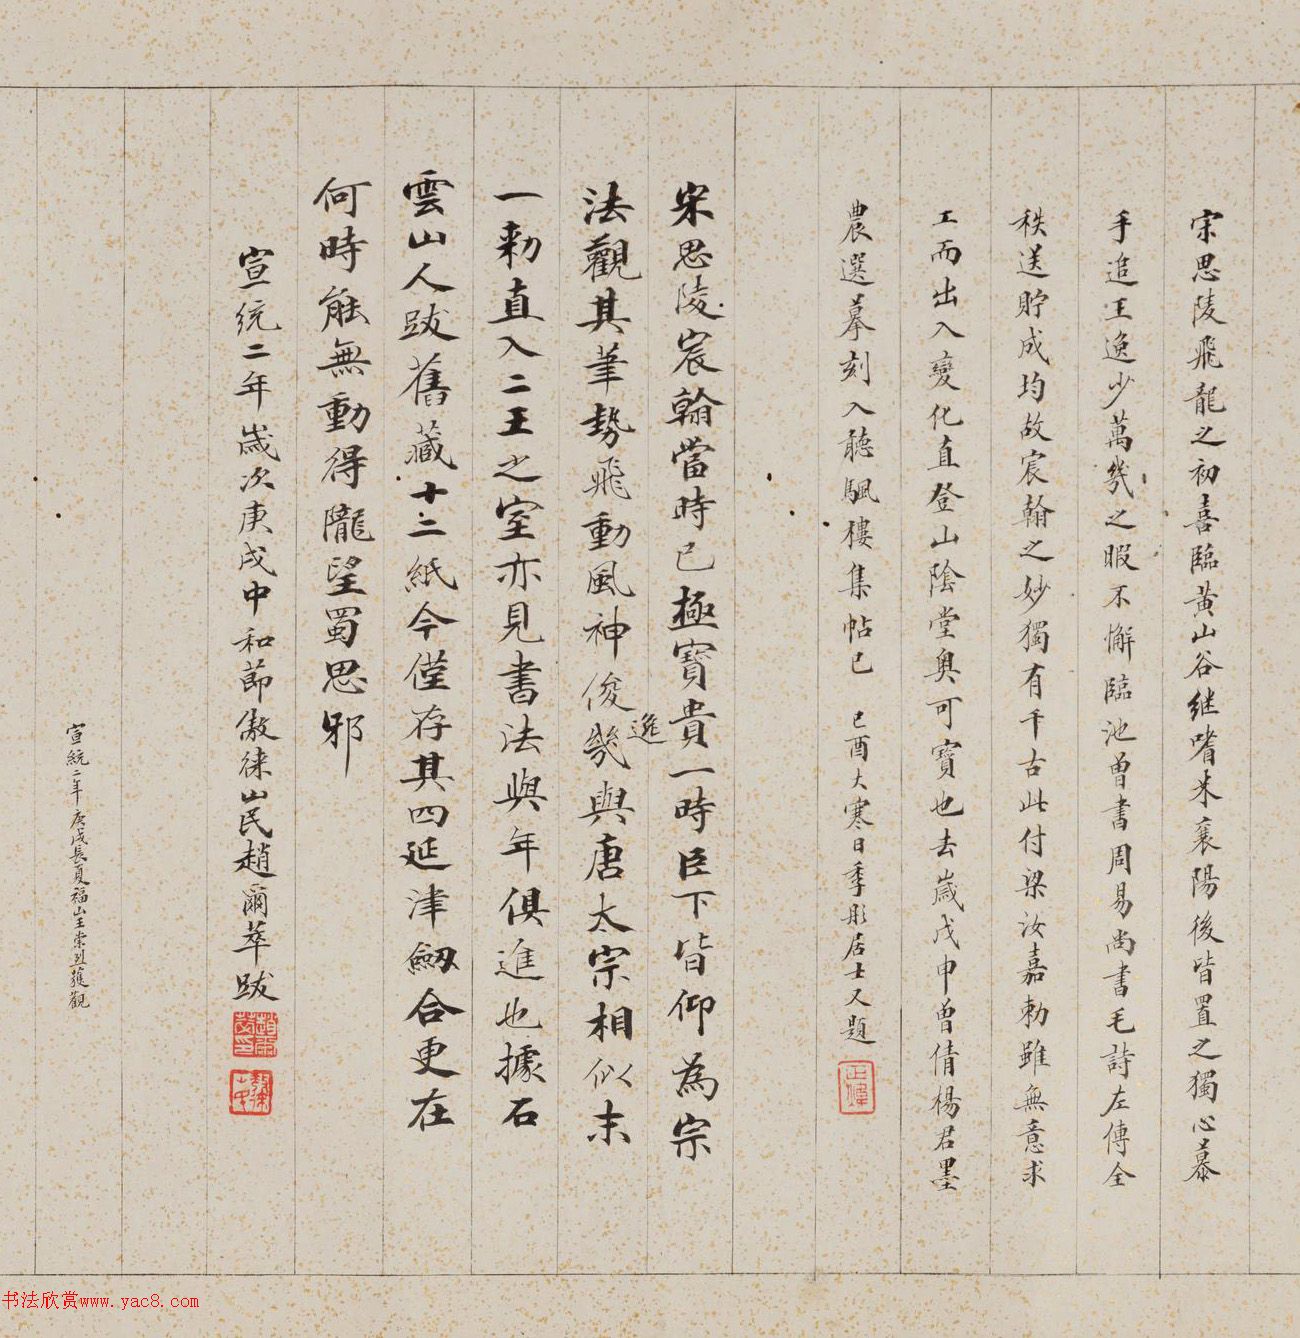 宗思陵飛龍之初喜臨黃山谷继嗜米襄陽後皆置之獨心慕
手追王逸少萬幾之暇不懈臨池曾書周易尚書毛詩左傳全
秩送貯成均故宸翰之妙獨有千古此付梁汝嘉勅雖無意求
工而出入變化直登山陰堂奥可寶也去歲戊申曾倩楊君墨
農選摹刻入聽颿樓集帖已 己酉大寒日季彤居士又題
正煒
宋思陵宸翰當時已極寶貴一時臣下皆仰為宗
法觀其筆勢飛動風神俊逸幾與唐太宗相似末
一勅直入二王之室亦見書法與年俱進也據石
雲山人跋舊藏十二紙今僅存其四延津劔合更在
何時能無動得隴望蜀思邪
宣統二年歲次庚戌中和節傲徠山民趙爾萃跋
宣統二年庚戌長夏福山王崇烈獲觀
书法欣赏www.yac8.com